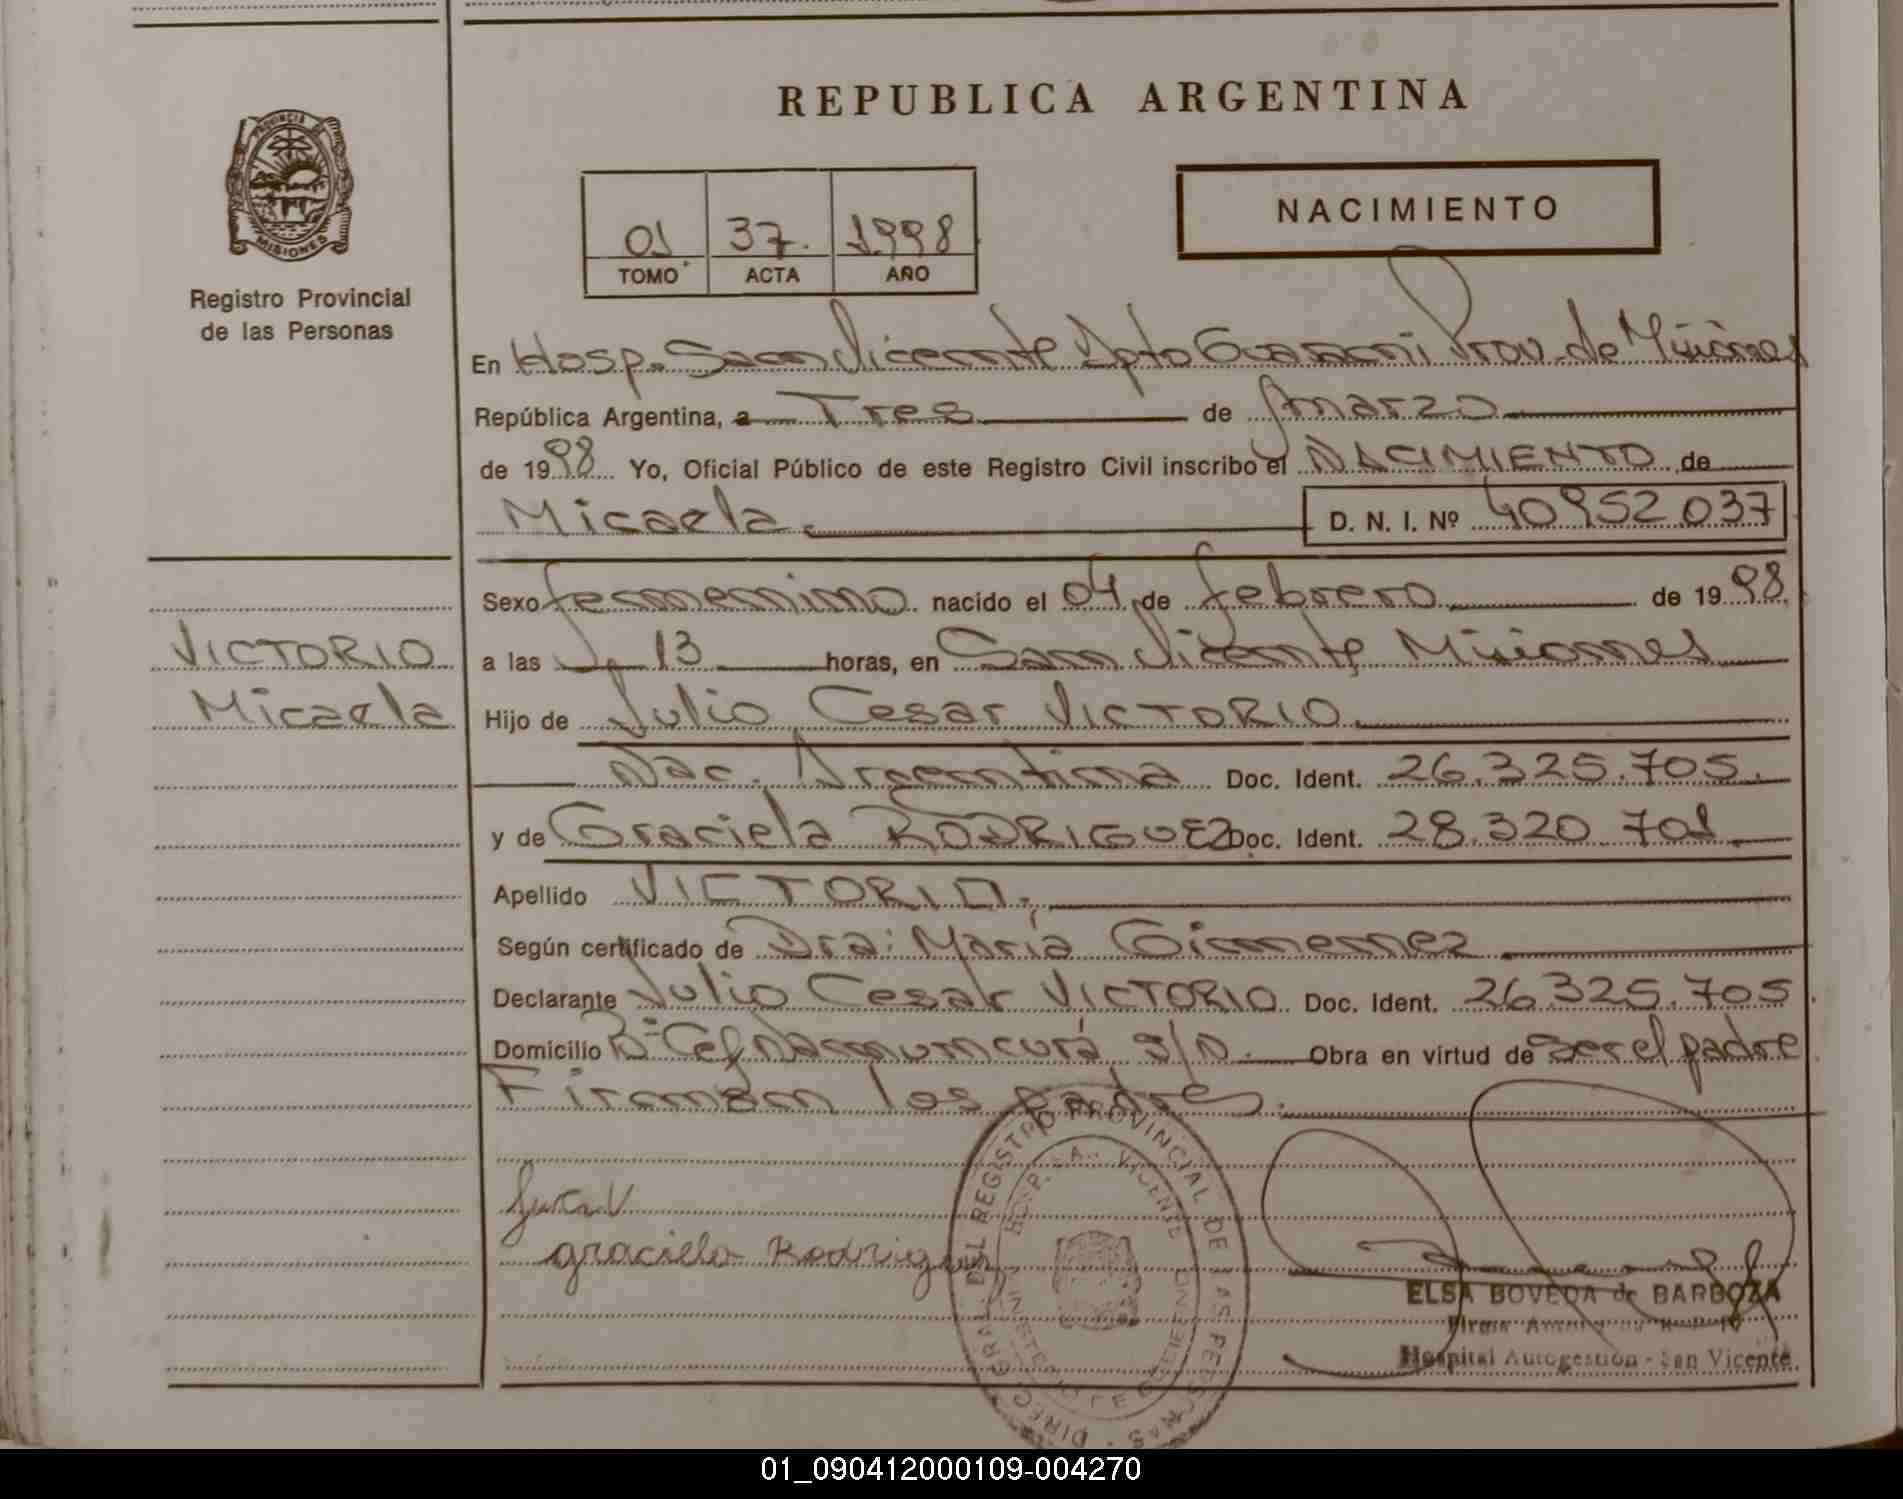 REPUBLICA ARGENTINA
PROVINCIA DE
MISIONES
Registro Provincial
de las Personas
01 37. 1998
TOMO ACTA AÑO
NACIMIENTO
En Hosp. San Vicente Dpto Guarani Prov. de Misiones
República Argentina, a Tres de marzo
de 1998 Yo, Oficial Público de este Registro Civil inscribo el NACIMIENTO de
Micaela. D. N. I. Nº 40952037
Sexo femenino nacido el 04 de febrero de 1998
VICTORIO
Micaela
a las 13 horas, en San Vicente Misiones
Hijo de Julio Cesar VICTORIO
Nac. Argentina Doc. Ident. 26.325.705.
y de Graciela RODRIGUEZ Doc. Ident. 28.320.701
Apellido VICTORIO.
Según certificado de Dra: Maria Gimenez
Declarante Julio Cesar VICTORIO Doc. Ident. 26.325.705
Domicilio Bº Cef Namuncurá s/n. Obra en virtud de ser el padre
Firman los padres.
graciela Rodriguez
DIREC. GRAL. DEL REGISTRO PROVINCIAL DE LAS PERSONAS
HOSP. SAN VICENTE
MINISTERIO DE GOBIERNO
ELSA BOVEDA de BARBOZA
Hospital Autogestión - San Vicente
01_090412000109-004270